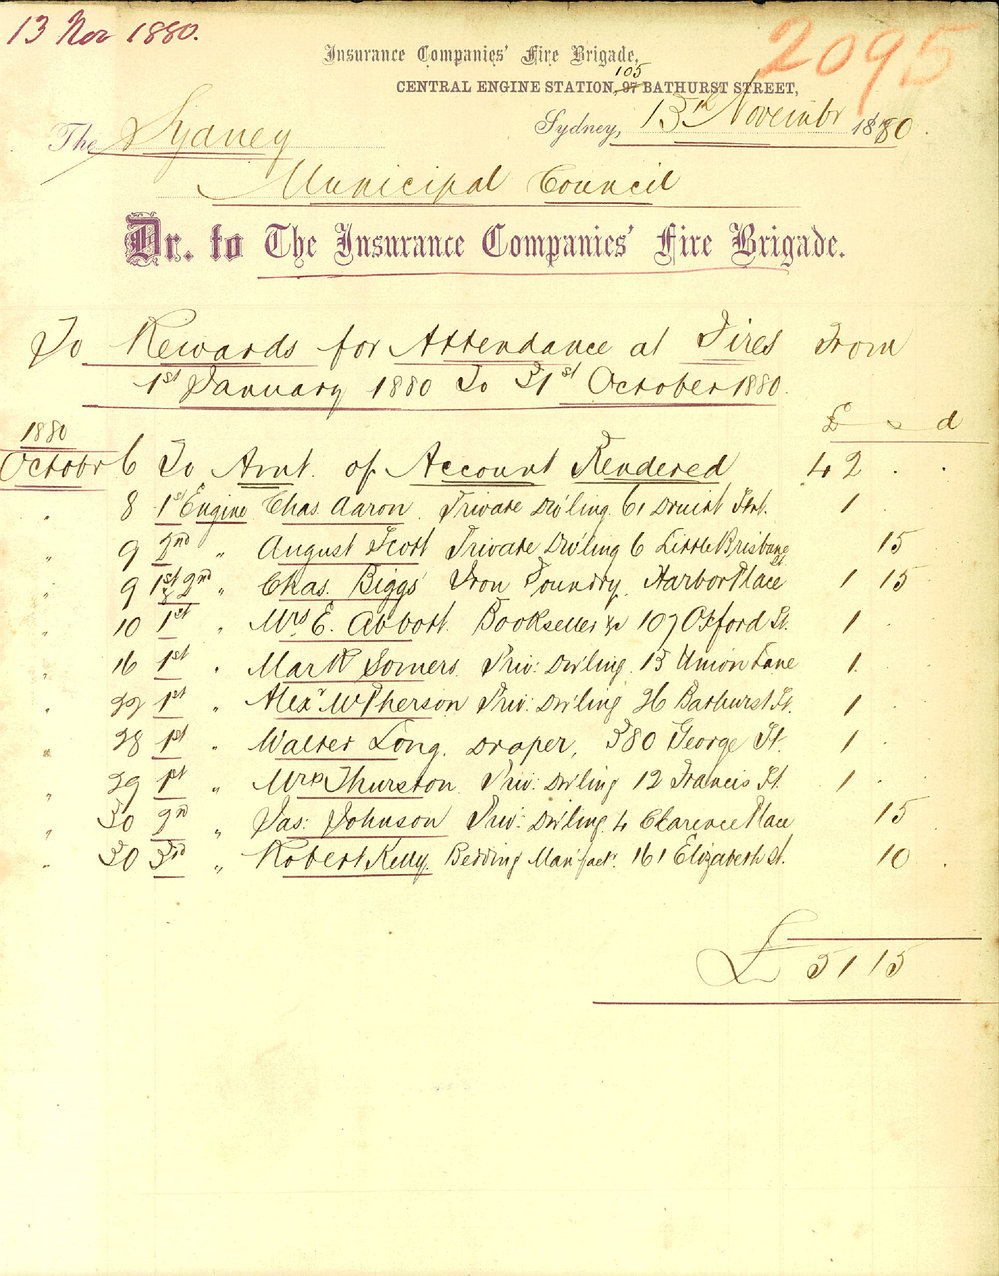 13 Nov 1880.
2095
Insurance Companies' Fire Brigade,
105
CENTRAL ENGINE STATION, 97 BATHURST STREET,
Sydney, 13th November 1880.
The Sydney
Municipal Council
Dr. to The Insurance Companies' Fire Brigade.
To Rewards for Attendance at Fires From
1st January 1880 To 31st October 1880.
£ s d
1880
October 6 To Amt. of Account Rendered 42 . .
" 8 1st Engine Chas. Aaron. Private Dw'ling. 61 Druitt Strt. 1 . .
" 9 2nd " August Scott Private Dw'ling 6 Little Brisbane St 15 .
" 9 1st & 2nd " Chas. Biggs Iron Foundry. Harbor Place 1 15 .
" 10 1st " Mrs E. Abbott. Bookseller &c 107 Oxford St. 1 . .
" 16 1st " Mark Somers Priv: Dw'ling. 13 Union Lane 1 . .
" 22 1st " Alexr McPherson Priv: Dw'ling 26 Bathurst St. 1 . .
" 28 1st " Walter Long. Draper, 380 George St. 1 . .
" 29 1st " Mrs Thurston. Priv: Dw'ling 12 Francis St. 1 . .
" 30 2nd " Jas: Johnson Priv: Dw'ling. 4 Clarence Place 15 .
" 30 3rd " Robert Kelly. Bedding Manfact. 161 Elizabeth St. 10 .
£ 51 15